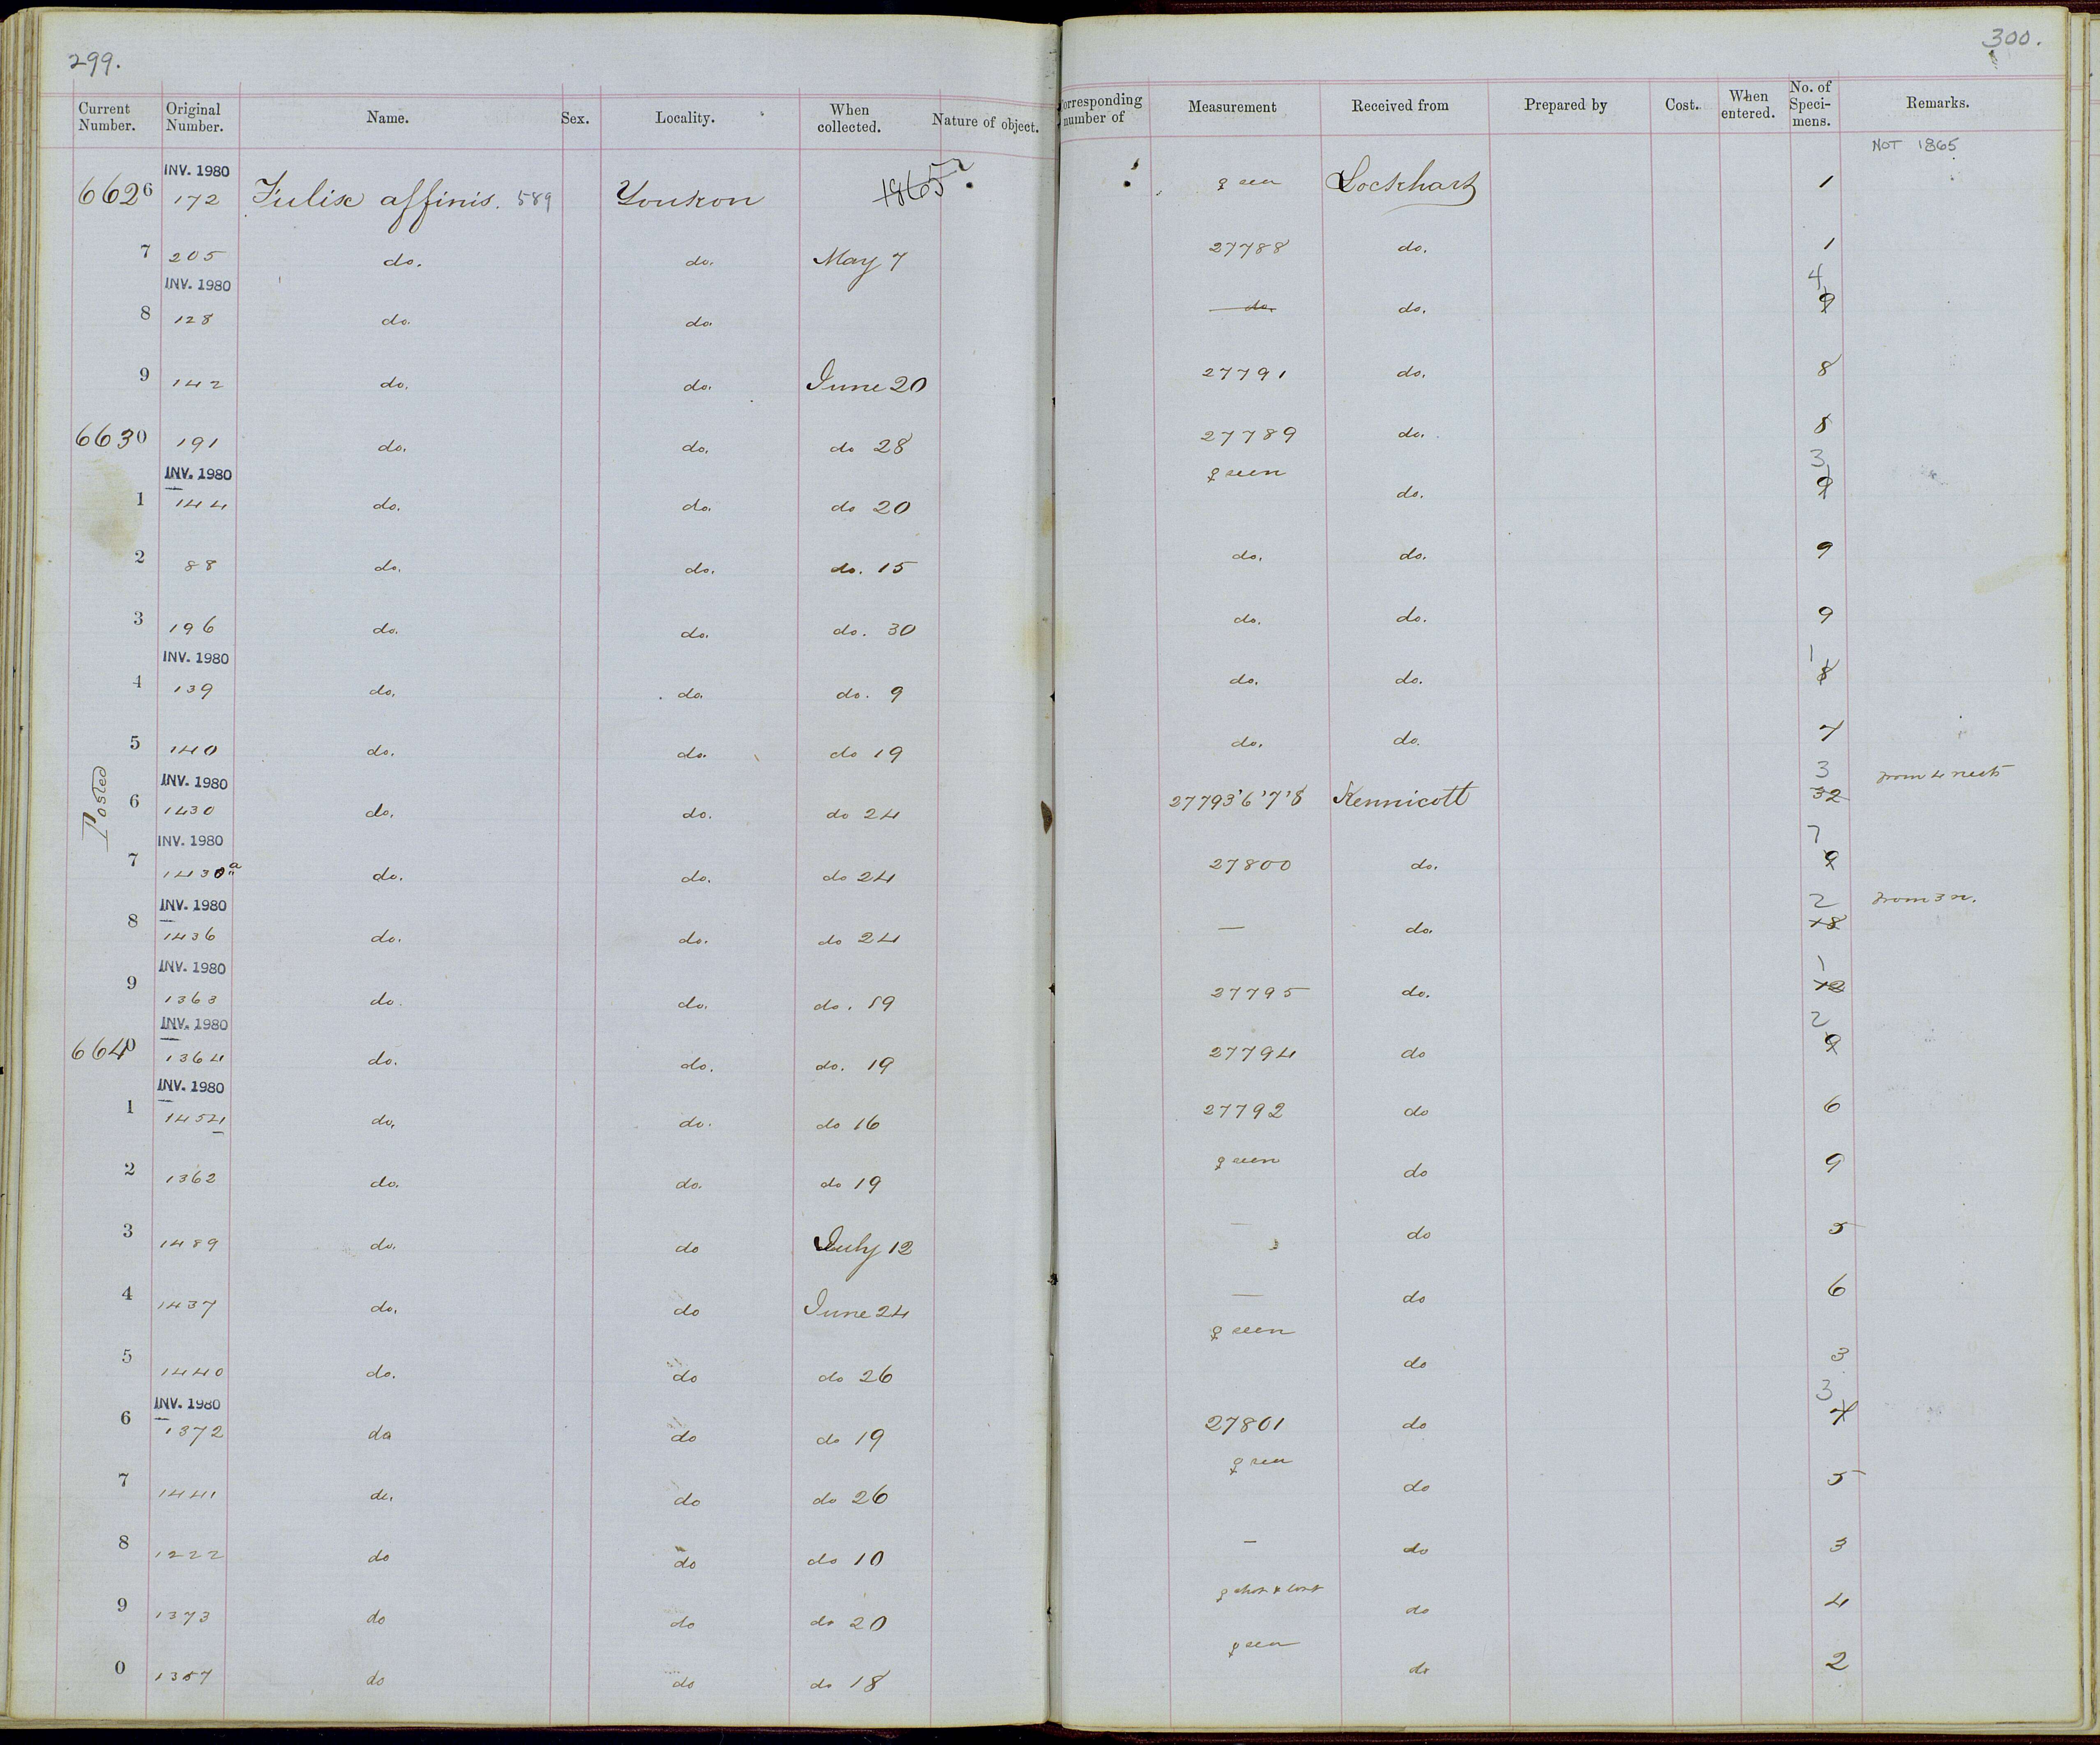 299.
300.
Current Number. Original Number. Name. Sex. Locality. When collected. Nature of object. orresponding number of Measurement Received from Prepared by Cost. When entered. No. of Speci- mens. Remarks.
NOT 1865
INV. 1980
6626 172 Fulix affinis. 589 Youkon 1865? ♀ seen Lockhart 1
7 205 do. do. May 7 27788 do. 1
INV. 1980 4
8 128 do. do. do. do. 9
9 142 do. do. June 20 27791 do. 8
6630 191 do. do. do 28 27789 do. 8
INV. 1980 ♀ seen 3
1 144 do. do. do 20 do. 9
2 88 do. do. do. 15 do. do. 9
3 196 do. do. do. 30 do. do. 9
INV. 1980 1
4 139 do. do. do. 9 do. do. 8
5 140 do. do. do 19 do. do. 7
Posted
INV. 1980 3 from 4 nests
6 1430 do. do. do 24 27793'6'7'8 Kennicott 32
INV. 1980 7
7 1430a do. do. do 24 27800 do. 9
INV. 1980 2 from 3 n.
8 1436 do. do. do 24 — do. 18
INV. 1980 1
9 1363 do. do. do. 19 27795 do. 12
INV. 1980 2
6640 1364 do. do. do. 19 27794 do 9
INV. 1980
1 1454 do, do. do 16 27792 do 6
2 1362 do. do. do 19 ♀ seen do 9
3 1489 do. do July 12 — do 5
4 1437 do. do June 24 — do 6
5 1440 do. do do 26 ♀ seen do 3
INV. 1980 3
6 1372 do do do 19 27801 do 7
7 1441 do. do do 26 ♀ seen do 5
8 1222 do do do 10 — do 3
9 1373 do do do 20 ♀ shot & lost do 4
0 1357 do do do 18 ♀ seen do 2